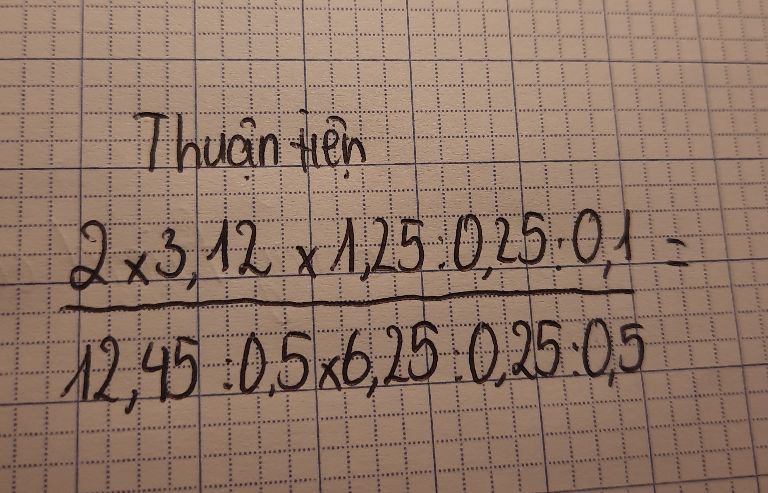 Thuận tiện
2 x 3,12 x 1,25 : 0,25 : 0,1 =
12,45 : 0,5 x 6,25 : 0,25 : 0,5